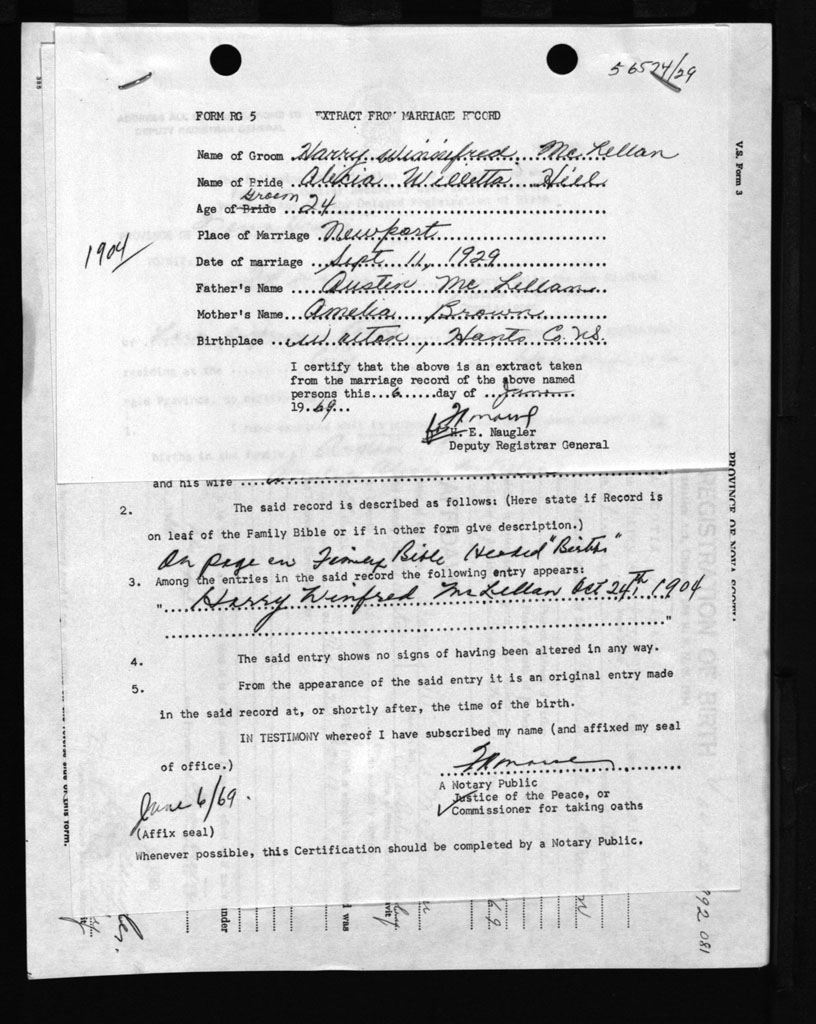 56524/29
FORM RG 5 EXTRACT FROM MARRIAGE RECORD
Name of Groom Harry Winnifred McLellan
Name of Bride Alicia Willetta Hill
Groom
Age of Bride 24
Place of Marriage Newport
1904
Date of marriage Sept 11, 1929
Father's Name Austin McLellan
Mother's Name Amelia Brown
Birthplace Walton, Hants Co. N.S.
I certify that the above is an extract taken
from the marriage record of the above named
persons this 6 day of June
1969
H. E. Naugler
Deputy Registrar General
and his wife
2. The said record is described as follows: (Here state if Record is
on leaf of the Family Bible or if in other form give description.)
On page in Family Bible Headed "Births"
3. Among the entries in the said record the following entry appears:
" Harry Winfred McLellan Oct 24th, 1904
"
4. The said entry shows no signs of having been altered in any way.
5. From the appearance of the said entry it is an original entry made
in the said record at, or shortly after, the time of the birth.
IN TESTIMONY whereof I have subscribed my name (and affixed my seal
of office.)
A Notary Public
Justice of the Peace, or
Commissioner for taking oaths
June 6/69.
(Affix seal)
Whenever possible, this Certification should be completed by a Notary Public.
V.S. Form 3
PROVINCE OF NOVA SCOTIA
REGISTRATION OF BIRTH
992 081
reverse side of this form.
under
I was
69